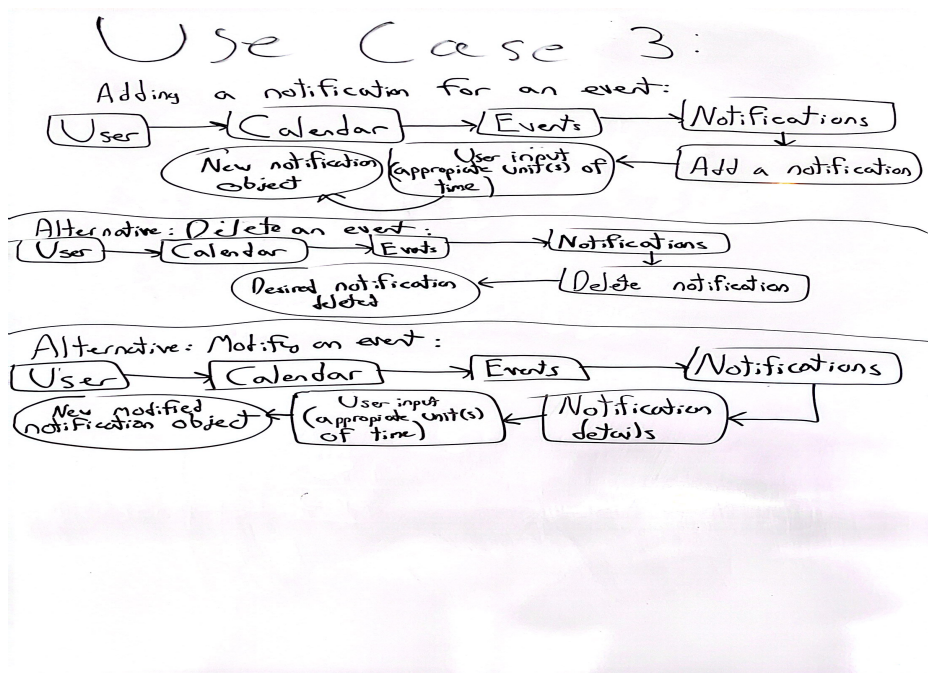 Use Case 3:
Adding a notification for an event:
User Calendar Events Notifications
Add a notification
User input
(appropiate unit(s) of
time)
New notification
object
Alternative: Delete an event:
User Calendar Events Notifications
Delete notification
Desired notification
deleted
Alternative: Modify an event:
User Calendar Events Notifications
Notification
details
User input
(appropiate unit(s)
of time)
New modified
notification object